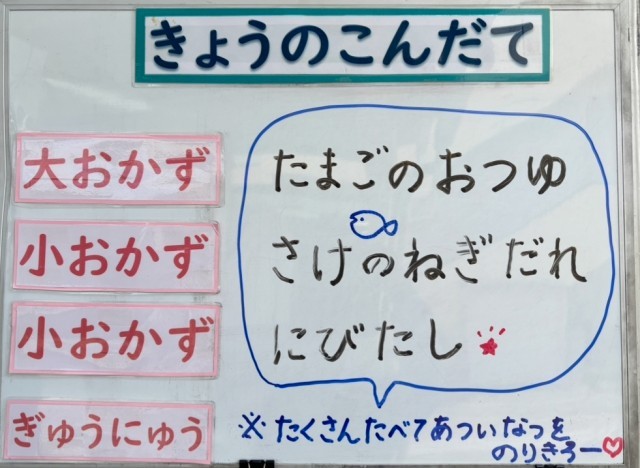 きょうのこんだて
大おかず たまごのおつゆ
小おかず さけのねぎだれ
小おかず にびたし
ぎゅうにゅう
※たくさんたべてあついなつを
のりきろー♡